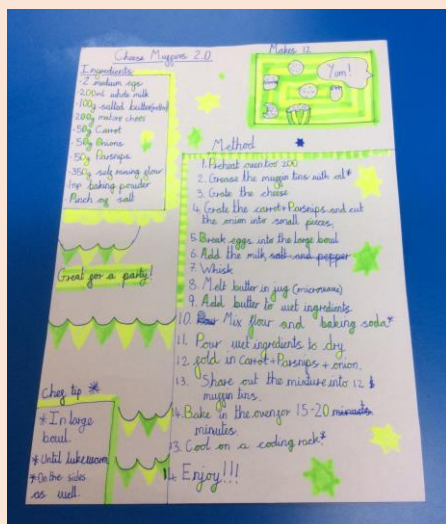 Cheese Muffins 2.0
Makes 12
Yom!
Ingredients
·2 medium egs
·200ml whole milk
·100g salted butter
200g mature chees
·50g Carrot
·50g Onions
·50g Parsnips
·350g self raising flour
·1tsp baking powder
·Pinch of salt
Great for a party!
Chef tip *
*In large
bowl.
*Until lukewarm
*On the sides
as well.
Method
1. Preheat oven to 200
2. Grease the muffin tins with oil*
3. Grate the cheese
4. Grate the carrot+Parsnips and cut
the onion into small pieces.
5. Break eggs into the large bowl
6. Add the milk salt and pepper
7. Whisk
8. Melt butter in jug (microwave)
9. Add butter to wet ingredients
10. Mix flour and baking soda*
11. Pour wet ingredients to dry
12. fold in carrot+Parsnips + onion.
13. Share out the mixture into 12
muffin tins.
14. Bake in the oven for 15-20 minutes
minutes.
13. Cool on a cooling rack*
14. Enjoy!!!